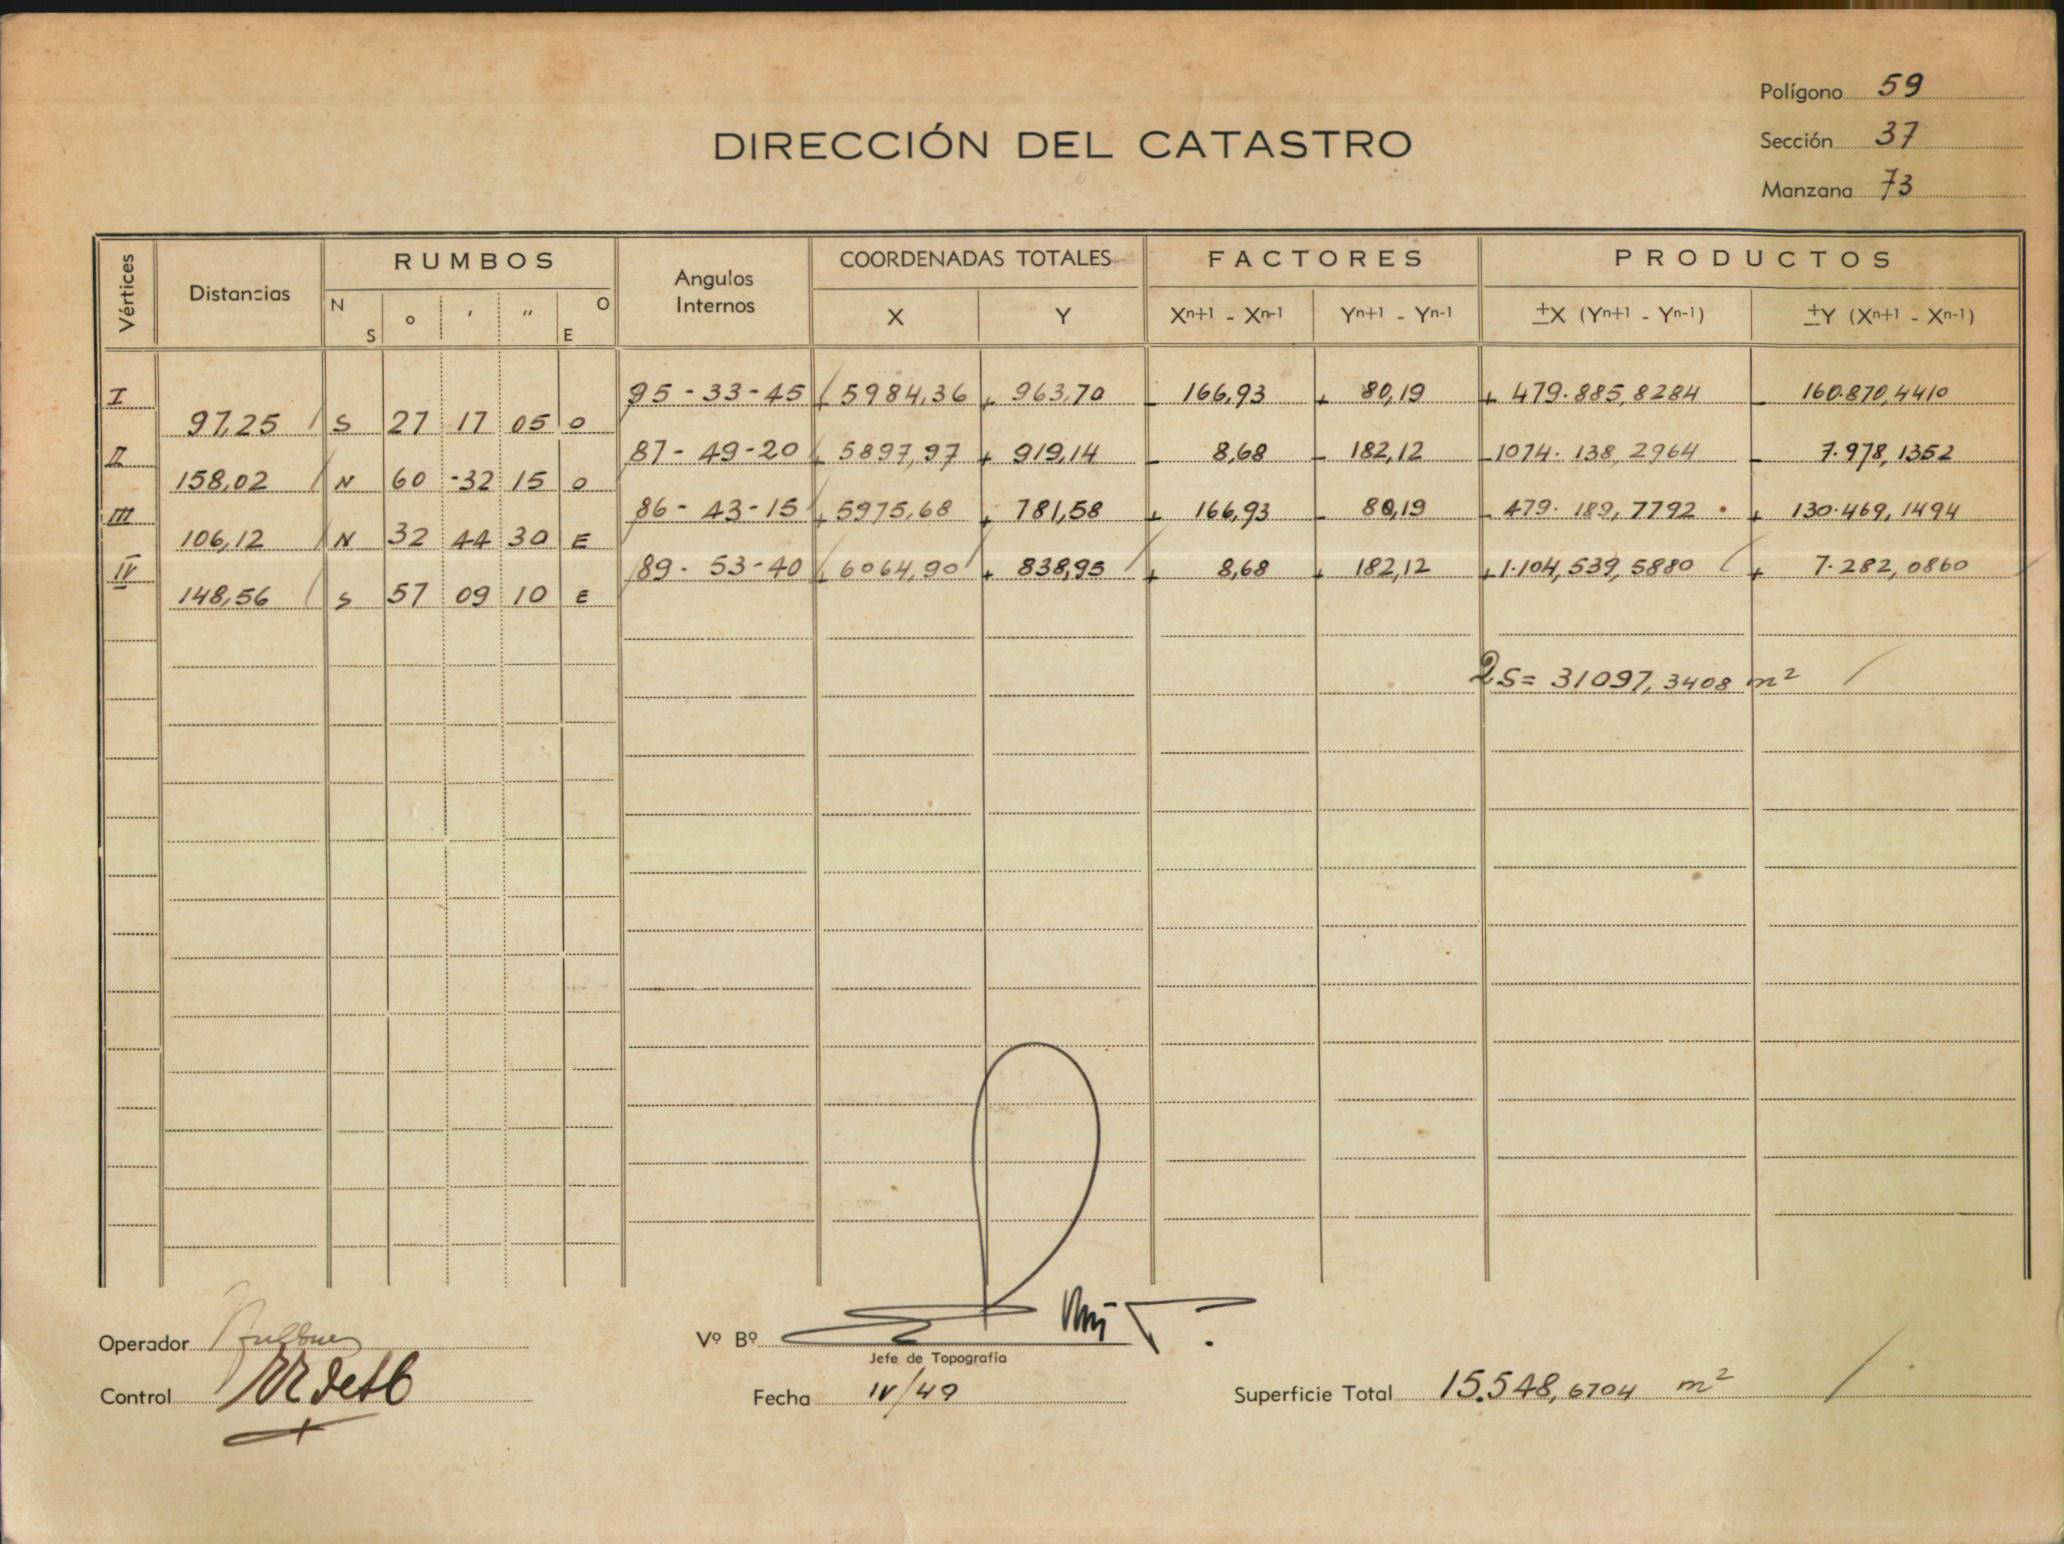 Polígono 59
DIRECCIÓN DEL CATASTRO
Sección 37
Manzana 73
Vértices Distancias RUMBOS Angulos Internos COORDENADAS TOTALES FACTORES PRODUCTOS
N S o ' " O E X Y Xn+1 - Xn-1 Yn+1 - Yn-1 ±X (Yn+1 - Yn-1) ±Y (Xn+1 - Xn-1)
I 95-33-45 + 5984,36 + 963,70 - 166,93 + 80,19 + 479.885,8284 - 160.870,4410
97,25 S 27 17 05 O
II 87-49-20 + 5897,97 + 919,14 - 8,68 - 182,12 - 1074.138,2964 - 7.978,1352
158,02 N 60 -32 15 O
III 86-43-15 + 5975,68 + 781,58 + 166,93 - 80,19 - 479.189,7792 + 130.469,1494
106,12 N 32 44 30 E
IV 89-53-40 + 6064,90 + 838,95 + 8,68 + 182,12 + 1.104,539,5880 + 7.282,0860
148,56 S 57 09 10 E
2S= 31097,3408 m²
Operador
Vº Bº
Jefe de Topografía
Control
Fecha IV/49
Superficie Total 15.548,6704 m²